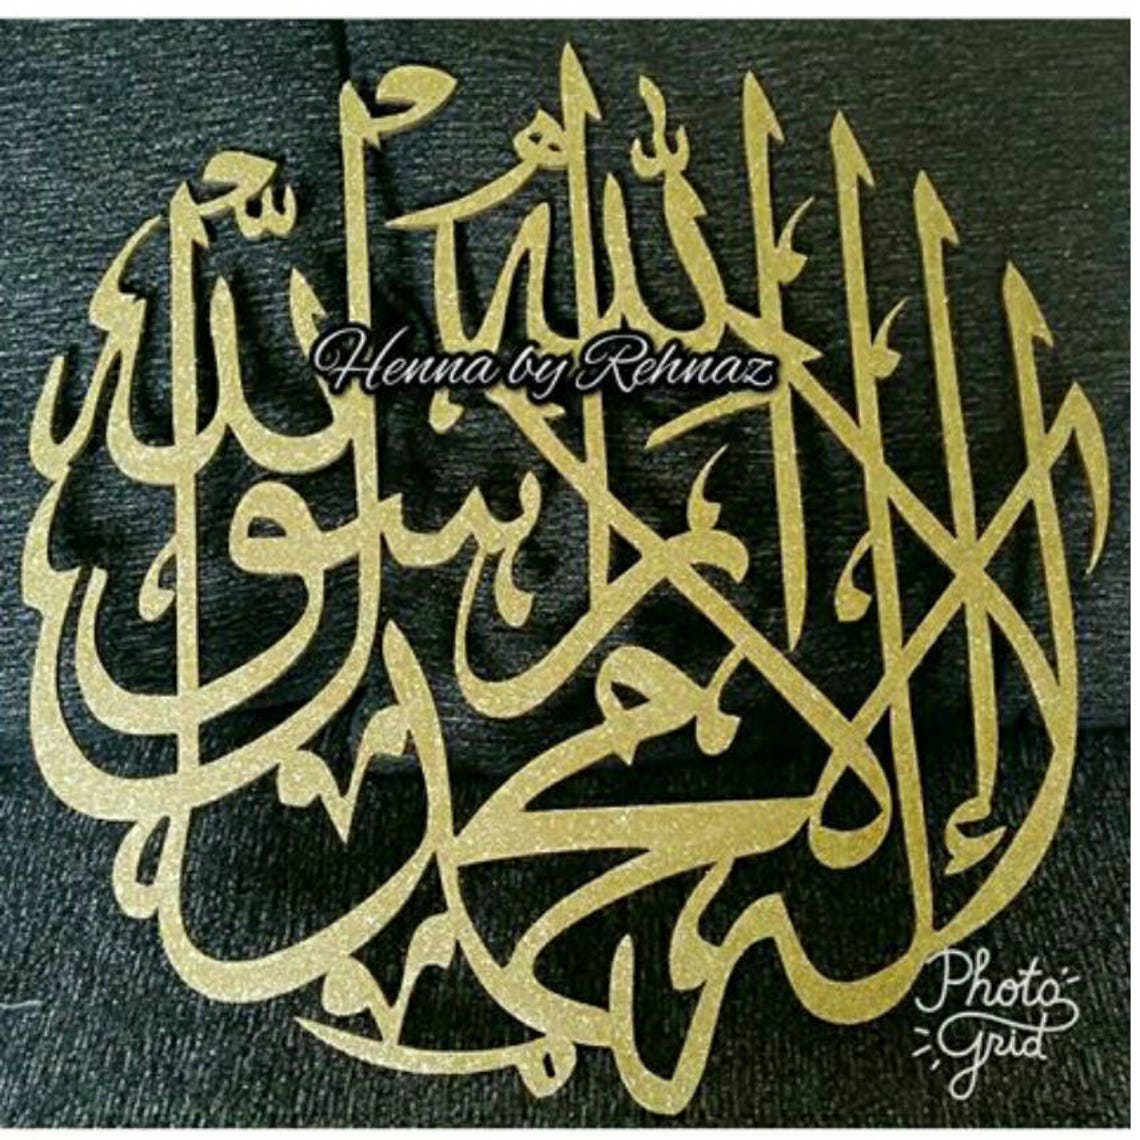 لا إله إلا الله محمد رسول الله
Henna by Rehnaz
Photo
Grid